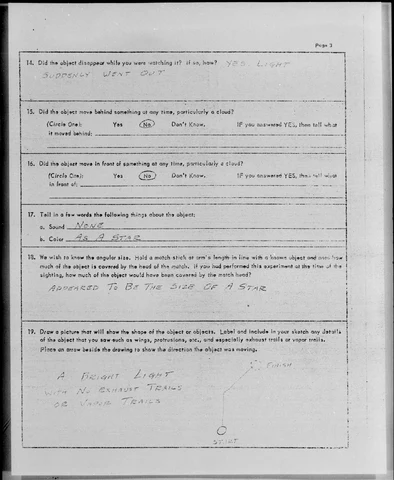 Page 3
14. Did the object disappear while you were watching it? If so, how? YES, LIGHT
SUDDENLY WENT OUT
15. Did the object move behind something at any time, particularly a cloud?
(Circle One): Yes No Don't Know. IF you answered YES, then tell what
it moved behind:
16. Did the object move in front of something at any time, particularly a cloud?
(Circle One): Yes No Don't Know. IF you answered YES, then tell what
in front of:
17. Tell in a few words the following things about the object:
a. Sound NONE
b. Color AS A STAR
18. We wish to know the angular size. Hold a match stick at arm's length in line with a known object and note how
much of the object is covered by the head of the match. If you had performed this experiment at the time of the
sighting, how much of the object would have been covered by the match head?
APPEARED TO BE THE SIZE OF A STAR
19. Draw a picture that will show the shape of the object or objects. Label and include in your sketch any details
of the object that you saw such as wings, protrusions, etc., and especially exhaust trails or vapor trails.
Place an arrow beside the drawing to show the direction the object was moving.
FINISH
A BRIGHT LIGHT
WITH NO EXHAUST TRAILS
OR VAPOR TRAILS
START